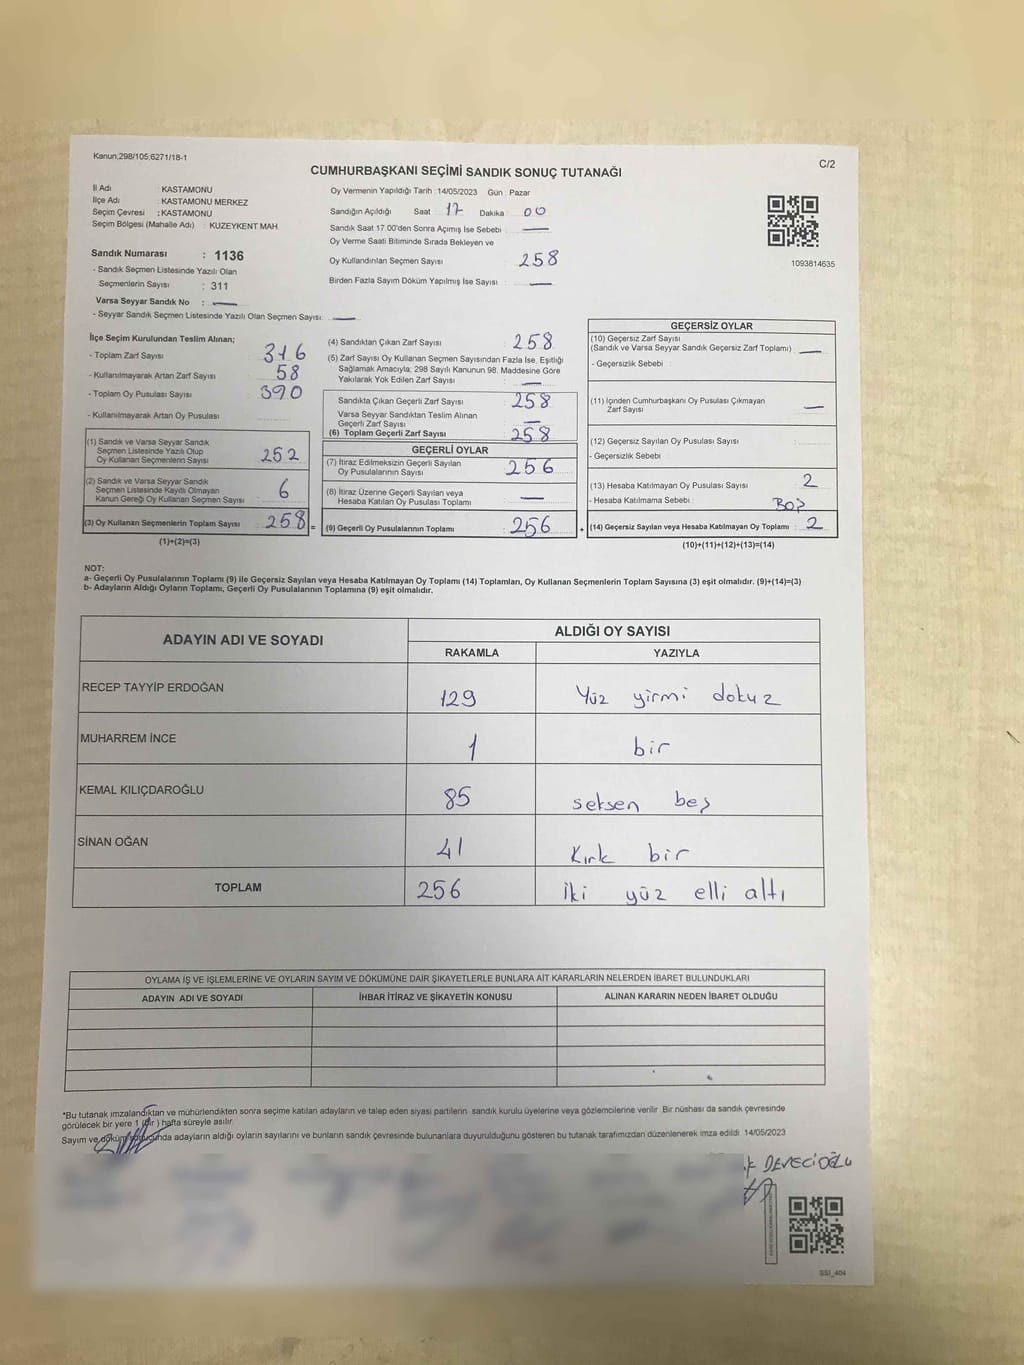 Kanun;298/105;6271/18-1
C/2
CUMHURBAŞKANI SEÇİMİ SANDIK SONUÇ TUTANAĞI
İl Adı : KASTAMONU
İlçe Adı : KASTAMONU MERKEZ
Seçim Çevresi : KASTAMONU
Seçim Bölgesi (Mahalle Adı) : KUZEYKENT MAH.
Sandık Numarası : 1136
- Sandık Seçmen Listesinde Yazılı Olan
Seçmenlerin Sayısı : 311
Varsa Seyyar Sandık No : —
- Seyyar Sandık Seçmen Listesinde Yazılı Olan Seçmen Sayısı: —
Oy Vermenin Yapıldığı Tarih : 14/05/2023 Gün : Pazar
Sandığın Açıldığı Saat : 17 Dakika : 00
Sandık Saat 17.00'den Sonra Açımış İse Sebebi : —
Oy Verme Saati Bitiminde Sırada Bekleyen ve
Oy Kullandırılan Seçmen Sayısı : 258
Birden Fazla Sayım Döküm Yapılmış İse Sayısı : —
1093814635
İlçe Seçim Kurulundan Teslim Alınan;
- Toplam Zarf Sayısı : 316
- Kullanılmayarak Artan Zarf Sayısı : 58
- Toplam Oy Pusulası Sayısı : 390
- Kullanılmayarak Artan Oy Pusulası :
(1) Sandık ve Varsa Seyyar Sandık
Seçmen Listesinde Yazılı Olup
Oy Kullanan Seçmenlerin Sayısı : 252
(2) Sandık ve Varsa Seyyar Sandık
Seçmen Listesinde Kayıtlı Olmayan
Kanun Gereği Oy Kullanan Seçmen Sayısı : 6
(3) Oy Kullanan Seçmenlerin Toplam Sayısı : 258 =
(1)+(2)=(3)
(4) Sandıktan Çıkan Zarf Sayısı : 258
(5) Zarf Sayısı Oy Kullanan Seçmen Sayısından Fazla İse, Eşitliği
Sağlamak Amacıyla; 298 Sayılı Kanunun 98. Maddesine Göre
Yakılarak Yok Edilen Zarf Sayısı : —
Sandıkta Çıkan Geçerli Zarf Sayısı : 258
Varsa Seyyar Sandıktan Teslim Alınan
Geçerli Zarf Sayısı : —
(6) Toplam Geçerli Zarf Sayısı : 258
GEÇERLİ OYLAR
(7) İtiraz Edilmeksizin Geçerli Sayılan
Oy Pusulalarının Sayısı : 256
(8) İtiraz Üzerine Geçerli Sayılan veya
Hesaba Katılan Oy Pusulası Toplamı : —
(9) Geçerli Oy Pusulalarının Toplamı : 256 +
GEÇERSİZ OYLAR
(10) Geçersiz Zarf Sayısı
(Sandık ve Varsa Seyyar Sandık Geçersiz Zarf Toplamı) : —
- Geçersizlik Sebebi :
(11) İçinden Cumhurbaşkanı Oy Pusulası Çıkmayan
Zarf Sayısı : —
(12) Geçersiz Sayılan Oy Pusulası Sayısı :
- Geçersizlik Sebebi :
(13) Hesaba Katılmayan Oy Pusulası Sayısı : 2
- Hesaba Katılmama Sebebi : Boş
(14) Geçersiz Sayılan veya Hesaba Katılmayan Oy Toplamı : 2
(10)+(11)+(12)+(13)=(14)
NOT:
a- Geçerli Oy Pusulalarının Toplamı (9) ile Geçersiz Sayılan veya Hesaba Katılmayan Oy Toplamı (14) Toplamları, Oy Kullanan Seçmenlerin Toplam Sayısına (3) eşit olmalıdır. (9)+(14)=(3)
b- Adayların Aldığı Oyların Toplamı, Geçerli Oy Pusulalarının Toplamına (9) eşit olmalıdır.
ADAYIN ADI VE SOYADI ALDIĞI OY SAYISI
RAKAMLA YAZIYLA
RECEP TAYYİP ERDOĞAN 129 Yüz yirmi dokuz
MUHARREM İNCE 1 bir
KEMAL KILIÇDAROĞLU 85 seksen beş
SİNAN OĞAN 41 Kırk bir
TOPLAM 256 İki yüz elli altı
OYLAMA İŞ VE İŞLEMLERİNE VE OYLARIN SAYIM VE DÖKÜMÜNE DAİR ŞİKAYETLERLE BUNLARA AİT KARARLARIN NELERDEN İBARET BULUNDUKLARI
ADAYIN ADI VE SOYADI İHBAR İTİRAZ VE ŞİKAYETİN KONUSU ALINAN KARARIN NEDEN İBARET OLDUĞU
*Bu tutanak imzalandıktan ve mühürlendikten sonra seçime katılan adayların ve talep eden siyasi partilerin sandık kurulu üyelerine veya gözlemcilerine verilir. Bir nüshası da sandık çevresinde
görülecek bir yere 1 (bir) hafta süreyle asılır.
Sayım ve döküm sonucunda adayların aldığı oyların sayılarını ve bunların sandık çevresinde bulunanlara duyurulduğunu gösteren bu tutanak tarafımızdan düzenlenerek imza edildi. 14/05/2023
DEVECİOĞLU
SSI_404